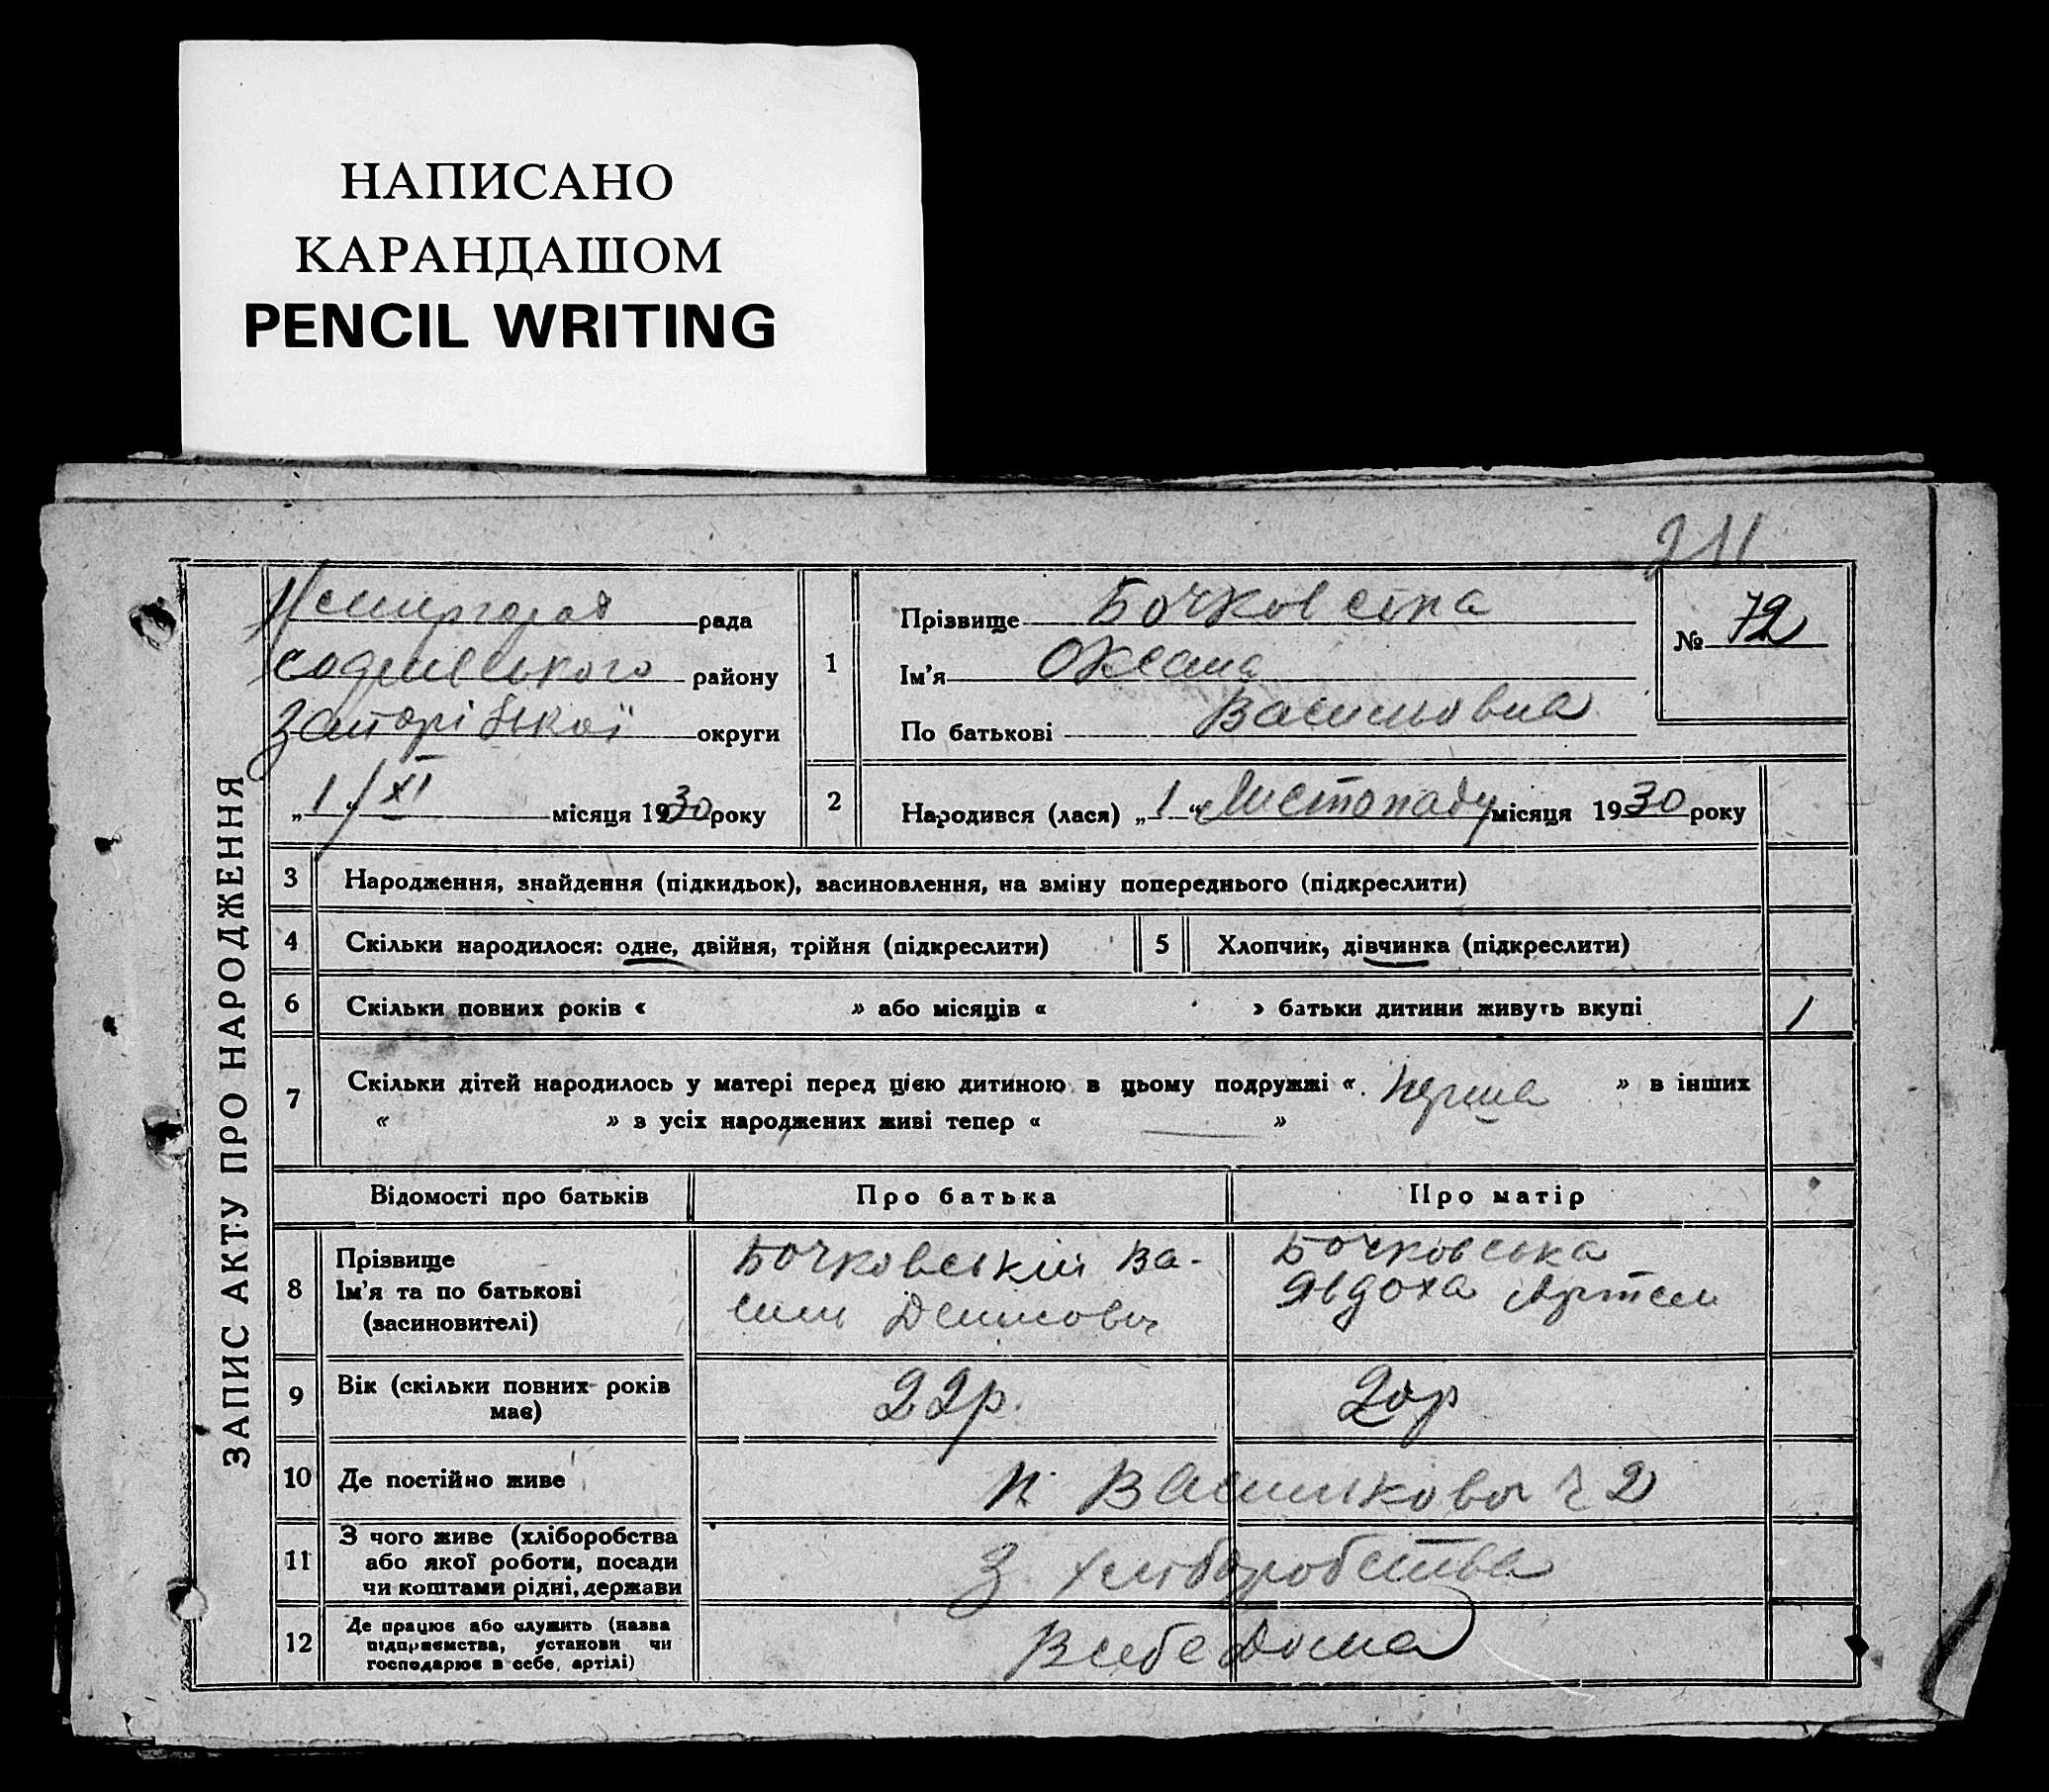 НАПИСАНО
КАРАНДАШОМ
PENCIL WRITING
211
ЗАПИС АКТУ ПРО НАРОДЖЕННЯ
рада
району
Запорізької округи
„1“/XI місяця 1930 року
1
Прізвище Бочковська
Ім'я Оксана
По батькові Васильовна
№ 72
2 Народився (лася) „1“ Листопаду місяця 1930 року
3 Народження, знайдення (підкидьок), васиновлення, на зміну попереднього (підкреслити)
4 Скільки народилося: одне, двійня, трійня (підкреслити) 5 Хлопчик, дівчинка (підкреслити)
6 Скільки повних років « » або місяців « » батьки дитини живуть вкупі 1
7 Скільки дітей народилось у матері перед цією дитиною в цьому подружжі « перша » в інших
« » з усіх народжених живі тепер « — »
Відомості про батьків Про батька Про матір
8 Прізвище
Ім'я та по батькові
(васиновителі)
Бочковський Ва-
силь Демидович
Бочковська
Явдоха Артем
9 Вік (скільки повних років
має) 22р. 20р
10 Де постійно живе
11 З чого живе (хліборобства
або якої роботи, посади
чи коштами рідні, держави
З хліборобства
12 Де працює або служить (назва
підприємства, установи чи
господарює в себе, артілі)
В себе дома